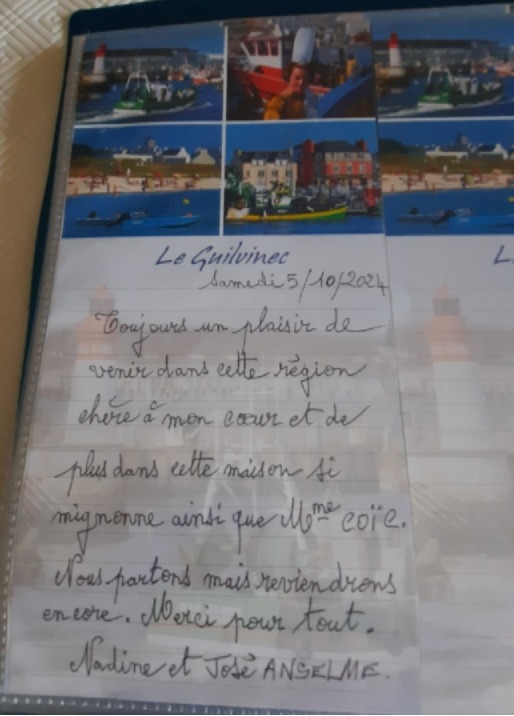 Le Guilvinec
L
Samedi 5/10/2024
Toujours un plaisir de
venir dans cette région
chère à mon cœur et de
plus dans cette maison si
mignonne ainsi que Mme COÏC.
Nous partons mais reviendrons
encore. Merci pour tout.
Nadine et José ANSELME.